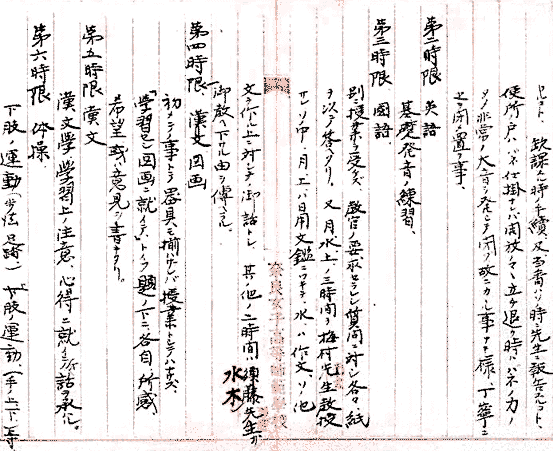 ヒコト、放課ノ時ノ手續又当番ノ時ハ先生ニ報告スルコト、
便所ノ戸ハバネ仕掛ナレバ開放ノママ立チ退ク時ハバネノ力ノ
ソノ非常ナ大音ヲ発シテ閉ヅ故ニカカル事ナキ様、丁寧ニ
セヲ閉メ置ク事、
第二時限 英語
基礎発音ノ練習、
第三時限 國語
別ニ授業ヲ受ケズ 教官ノ要求セラレシ質問ニ対シ各々紙
ヲ以テ答ヘタリ。又月水土ノ三時間ヲ梅村先生教授
サレソノ中、月土ハ日用文鑑ニツキテ、水ハ作文、ソノ他
文ヲ作ル上ニ対シテノ御話トシ 其ノ他ノ二時間須藤先生ガ
水木
御教ヘ下サル由ヲ傳ヘラル。
第四時限 漢文 図画
初メテノ事トテ器具モ揃ハザレバ授業トシテハナサズ、
「學習シ図画ニ就イテ」トイフ題ノ下ニ、各自ノ所感
希望或ハ意見ヲ書キタリ。
第五時限 漢文
漢文學學習上ノ注意、心得ニ就イテ訓話ヲ承ル。
第六時限 体操
下肢ノ運動（歩法足踏） 上肢ノ運動、（手ノ上下）等
奈良女子高等師範學校